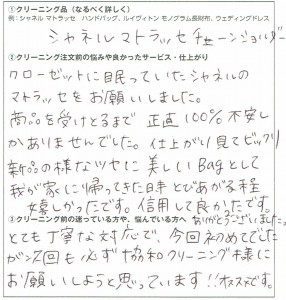 ①クリーニング品（なるべく詳しく）
例：シャネル マトラッセ　ハンドバッグ、ルイヴィトン モノグラム長財布、ウェディングドレス
シャネル マトラッセ チェーンショルダー
②クリーニング注文前の悩みや良かったサービス・仕上がり
クローゼットに眠っていたシャネルの
マトラッセをお願いしました。
商品を受けとるまで 正直100%不安し
かありませんでした。仕上がり見てビックリ
新品の様なツヤに美しいBagとして
我が家に帰ってきた日はとびあがる程
嬉しかったです。信用して良かたです。
ありがとうございました。
③クリーニング前の迷っている方や、悩んでいる方へ
とても丁寧な対応で、今回初めてでした
が次回も必ず協和クリーニング様に
お願いしようと思っています!!オススメです。